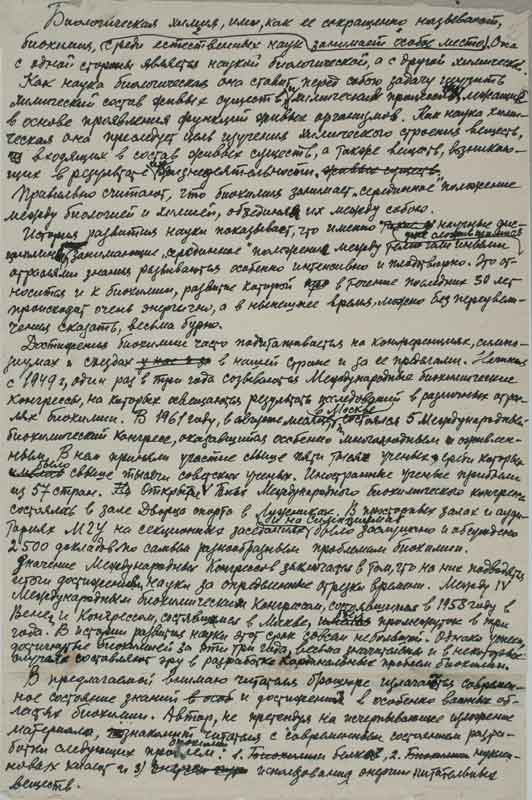 Биологическая химия, или, как ее сокращенно называют,
биохимия, среди естественных наук занимает особое место. Она
с одной стороны является наукой биологической, а с другой химической.
Как наука биологическая она ставит перед собою задачу изучить
химический состав живых существ и химические процессы, лежащие
в основе проявления функций живых организмов. Как наука хими-
ческая она преследует цель изучения химического строения веществ,
входящих в состав живых существ, а также веществ, возникаю-
щих в результате жизнедеятельности живых существ.
Правильно считают, что биохимия занимает серединное положение
между биологией и химией, объединяя их между собою.
История развития науки показывает, что именно научные дис-
циплины, занимающие „серединное" положение между теми или иными
отраслями знания развиваются особенно интенсивно и плодотворно. Это от-
носится и к биохимии, развитие которой в течение последних 30 лет
происходит очень энергично, а в нынешнее время, можно без преувели-
чения сказать, весьма бурно.
Достижения биохимии часто подытоживаются на конференциях, симпо-
зиумах и съездах в нашей стране и за ее пределами. Начиная
с 1949 г, один раз в три года созываются Международные биохимические
Конгрессы, на которых освещаются результаты исследований в различных отрас-
лях биохимии. В 1961 году, в августе месяце в Москве состоялся 5 Международный
биохимический Конгресс, оказавшийся особенно многолюдным и оживлен-
ным. В нем приняли участие свыше пяти тысяч ученых, среди которых
было свыше тысячи советских ученых. Иностранные ученые прибыли
из 57 стран. Открытие V Международного биохимического конгресса
состоялось в зале дворца спорта в Лужниках. В просторных залах и ауди-
ториях МГУ на секционных заседаниях и на симпозиумах было заслушано и обсуждено
2500 докладов по самым разнообразным проблемам биохимии.
Значение Международных Конгрессов заключается в том, что на них подводятся
итоги достижений науки за определенные отрезки времени. Между IV
Международным биохимическим Конгрессом, состоявшимся в 1958 году в
Вене, и Конгрессом, состоявшимся в Москве, промежуток в три
года. В истории развития науки этот срок совсем небольшой. Однако
достигнутые биохимией за эти три года, весьма значительны и в некоторых
случаях составляют эру в разработке кардинальных проблем биохимии.
В предлагаемой вниманию читателя брошюре излагается современ-
ное состояние знаний и достижений в особенно важных об-
ластях биохимии. Автор, не претендуя на исчерпывающее изложение
материала, знакомит читателя с современным состоянием разра-
ботки следующих проблем: 1. Биохимии белков, 2. нуклеи-
новых кислот и 3) использования энергии питательных
веществ.